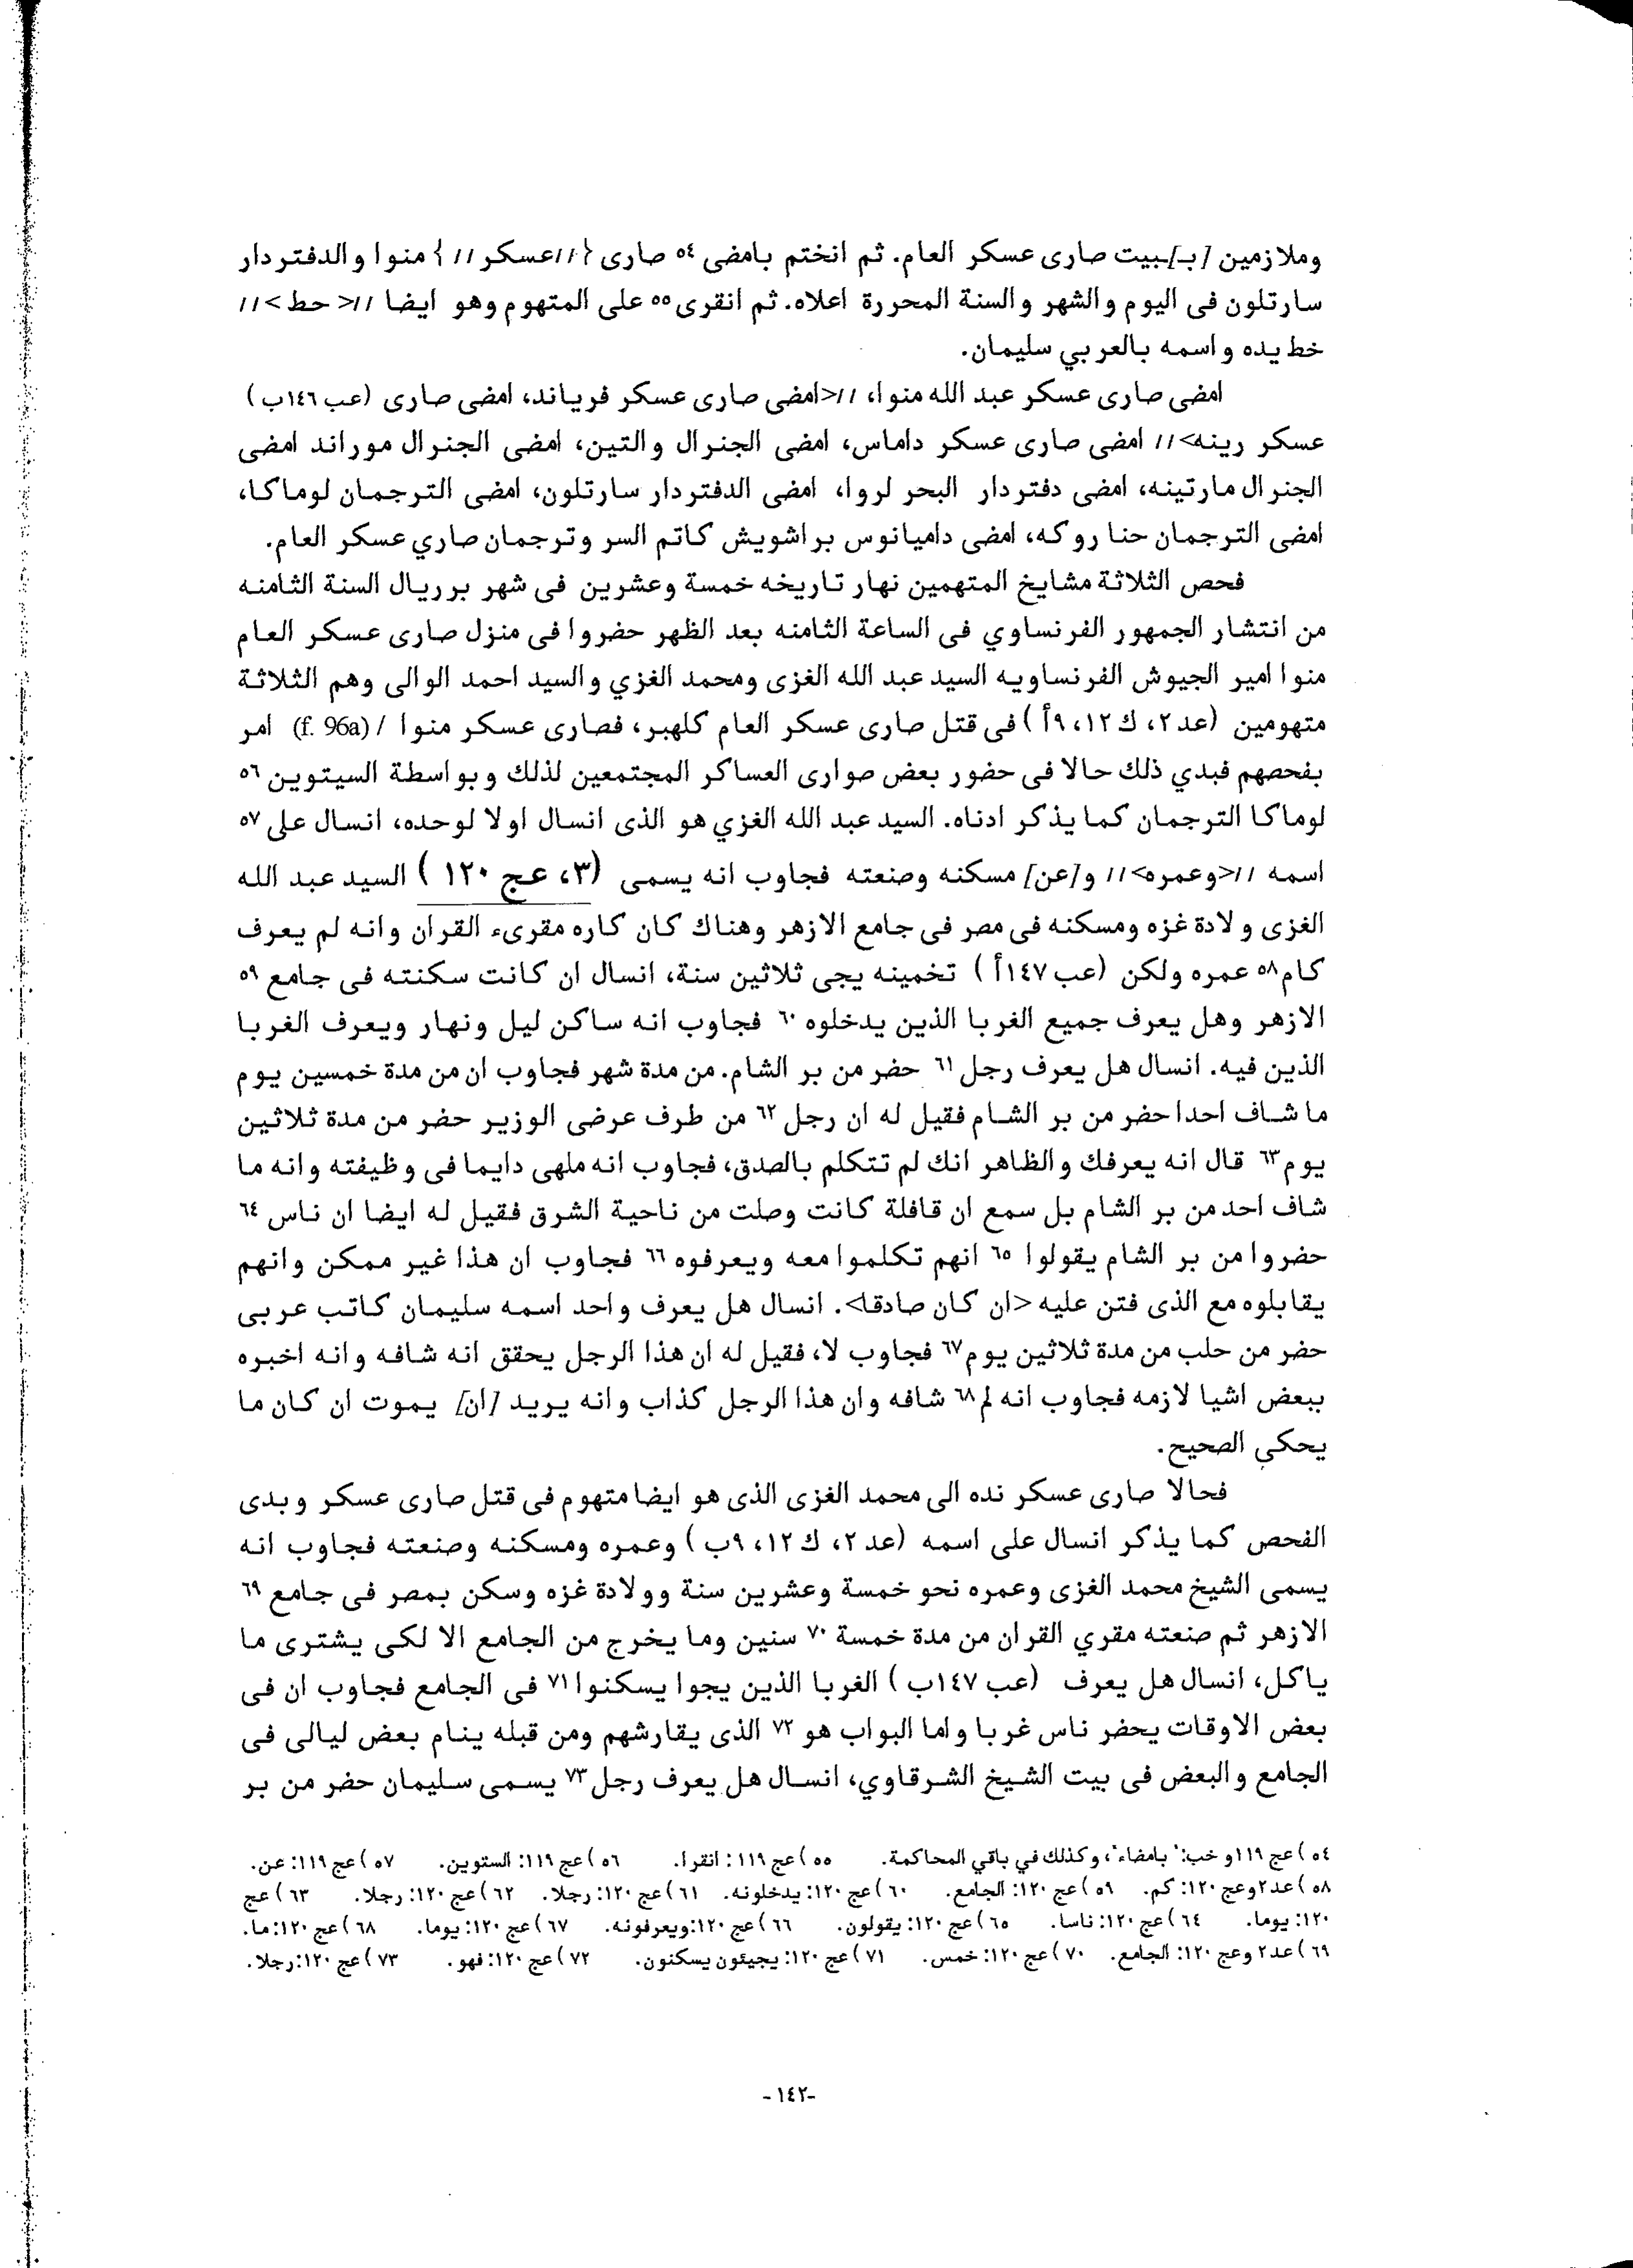 وملازمين [بـ]ـبيت صارى عسكر العام. ثم انختم بامضى ٥٤ صارى {//عسكر//} منوا والدفتردار
سارتلون فى اليوم والشهر والسنة المحررة اعلاه. ثم انقرى ٥٥ على المتهوم وهو ايضا //<حط>//
خط يده واسمه بالعربي سليمان.
امضى صارى عسكر عبد الله منوا، //<امضى صارى عسكر فرياند، امضى صارى (عب ١٤٦ب)
عسكر رينه>// امضى صارى عسكر داماس، امضى الجنرال والتين، امضى الجنرال موراند امضى
الجنرال مارتينه، امضى دفتردار البحر لروا، امضى الدفتردار سارتلون، امضى الترجمان لوماكا،
امضى الترجمان حنا روكه، امضى داميانوس براشويش كاتم السر وترجمان صاري عسكر العام.
فحص الثلاثة مشايخ المتهمين نهار تاريخه خمسة وعشرين فى شهر برريال السنة الثامنه
من انتشار الجمهور الفرنساوي فى الساعة الثامنه بعد الظهر حضروا فى منزل صارى عسكر العام
منوا امير الجيوش الفرنساويه السيد عبد الله الغزى ومحمد الغزي والسيد احمد الوالى وهم الثلاثة
متهومين (عد٢، ك ١٢، ٩أ) فى قتل صارى عسكر العام كلهبر، فصارى عسكر منوا / (f. 96a) امر
بفحصهم فبدي ذلك حالا فى حضور بعض صوارى العساكر المجتمعين لذلك وبواسطة السيتوين ٥٦
لوماكا الترجمان كما يذكر ادناه. السيد عبد الله الغزي هو الذى انسال اولا لوحده، انسال على ٥٧
اسمه //<وعمره>// و[عن] مسكنه وصنعته فجاوب انه يسمى (٣، عج ١٢٠) السيد عبد الله
الغزى ولادة غزه ومسكنه فى مصر فى جامع الازهر وهناك كان كاره مقرىء القران وانه لم يعرف
كام ٥٨ عمره ولكن (عب ١٤٧أ) تخمينه يجى ثلاثين سنة، انسال ان كانت سكنته فى جامع ٥٩
الازهر وهل يعرف جميع الغربا الذين يدخلوه ٦٠ فجاوب انه ساكن ليل ونهار ويعرف الغربا
الذين فيه. انسال هل يعرف رجل ٦١ حضر من بر الشام. من مدة شهر فجاوب ان من مدة خمسين يوم
ما شاف احدا حضر من بر الشام فقيل له ان رجل ٦٢ من طرف عرضى الوزير حضر من مدة ثلاثين
يوم ٦٣ قال انه يعرفك والظاهر انك لم تتكلم بالصدق، فجاوب انه ملهى دايما فى وظيفته وانه ما
شاف احد من بر الشام بل سمع ان قافلة كانت وصلت من ناحية الشرق فقيل له ايضا ان ناس ٦٤
حضروا من بر الشام يقولوا ٦٥ انهم تكلموا معه ويعرفوه ٦٦ فجاوب ان هذا غير ممكن وانهم
يقابلوه مع الذى فتن عليه <ان كان صادقا>. انسال هل يعرف واحد اسمه سليمان كاتب عربى
حضر من حلب من مدة ثلاثين يوم ٦٧ فجاوب لا، فقيل له ان هذا الرجل يحقق انه شافه وانه اخبره
ببعض اشيا لازمه فجاوب انه لم ٦٨ شافه وان هذا الرجل كذاب وانه يريد [ان] يموت ان كان ما
يحكي الصحيح.
فحالا صارى عسكر نده الى محمد الغزى الذى هو ايضا متهوم فى قتل صارى عسكر وبدى
الفحص كما يذكر انسال على اسمه (عد ٢، ك ١٢، ٩ب) وعمره ومسكنه وصنعته فجاوب انه
يسمى الشيخ محمد الغزى وعمره نحو خمسة وعشرين سنة وولادة غزه وسكن بمصر فى جامع ٦٩
الازهر ثم صنعته مقري القران من مدة خمسة ٧٠ سنين وما يخرج من الجامع الا لكى يشترى ما
ياكل، انسال هل يعرف (عب ١٤٧ب) الغربا الذين يجوا يسكنوا ٧١ فى الجامع فجاوب ان فى
بعض الاوقات يحضر ناس غربا واما البواب هو ٧٢ الذى يقارشهم ومن قبله ينام بعض ليالى فى
الجامع والبعض فى بيت الشيخ الشرقاوي، انسال هل يعرف رجل ٧٣ يسمى سليمان حضر من بر
٥٤) عج ١١٩ و خب: "بامضاء"، وكذلك في باقي المحاكمة. ٥٥) عج ١١٩: انقرا. ٥٦) عج ١١٩: الستوين. ٥٧) عج ١١٩: عن.
٥٨) عد٢ وعج ١٢٠: كم. ٥٩) عج ١٢٠: الجامع. ٦٠) عج ١٢٠: يدخلونه. ٦١) عج ١٢٠: رجلا. ٦٢) عج ١٢٠: رجلا. ٦٣) عج
١٢٠: يوما. ٦٤) عج ١٢٠: ناسا. ٦٥) عج ١٢٠: يقولون. ٦٦) عج ١٢٠: ويعرفونه. ٦٧) عج ١٢٠: يوما. ٦٨) عج ١٢٠: ما.
٦٩) عد٢ وعج ١٢٠: الجامع. ٧٠) عج ١٢٠: خمس. ٧١) عج ١٢٠: يجيئون يسكنون. ٧٢) عج ١٢٠: فهو. ٧٣) عج ١٢٠: رجلا.
-١٤٢-